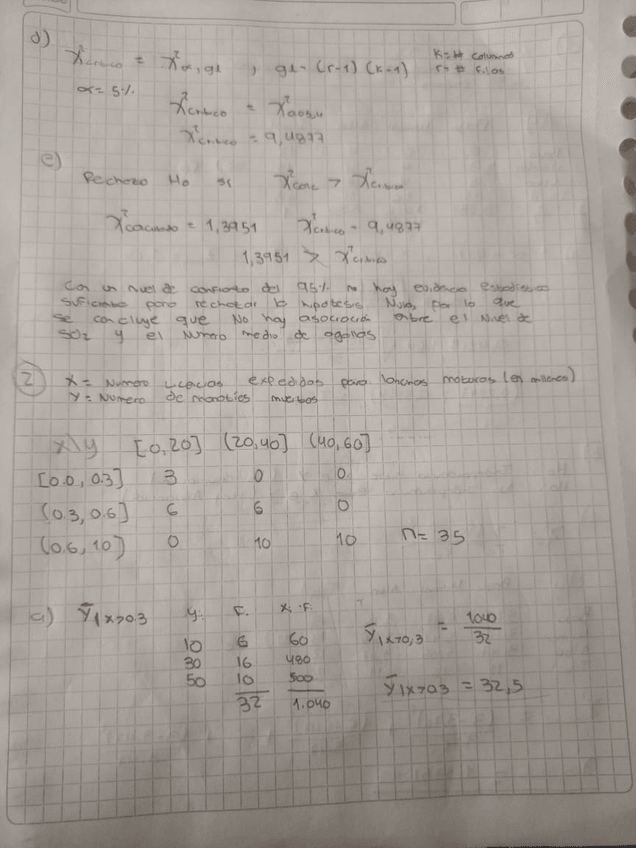 d)
X² critico = X² α, gl , gl = (r-1) (k-1) K= # columnas
r= # filas
α= 5%
X² critico = X² 0.05,4
X² critico = 9,4877
e)
Rechazo Ho si X² calc > X² critico
X² calculado = 1,3951 X² critico = 9,4877
1,3951 > X² critico
Con un nivel de confianza del 95% no hay evidencia estadistica
suficiente para rechazar la hipotesis Nula, por lo que
se concluye que No hay asociación entre el Nivel de
SO2 y el Numero medio de
2 X = Numero Licencias expedidas para lanchas motoras (en)
Y = Numero de manaties muertos
X\Y [0,20] (20,40] (40,60]
[0.0, 0.3] 3 0 0
(0.3, 0.6] 6 6 0
(0.6, 10] 0 10 10 n= 35
a) ȳ|x>0.3 yi F. Xi·F.
10 6 60
30 16 480
50 10 500
32 1.040
ȳ|x>0,3 = 1040/32
ȳ|x>03 = 32,5